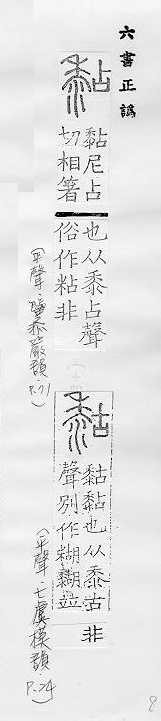 六書正譌
黏
黏尼占
切相箸
也从黍占聲
俗作粘非
(平聲 鹽嚴韻 P.71)
䵑
䵑黏也从黍古
聲別作糊𪏻竝
非
(平聲・七虞模韻・P.24)